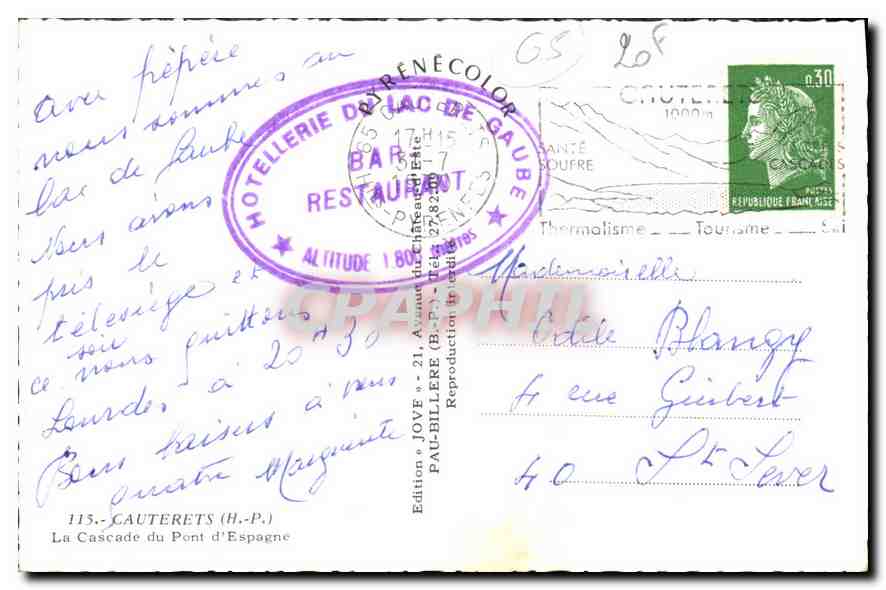 Avec pépère
nous sommes au
lac de Gaube
Nous avons
pris le
télésiège et
ce soir nous quittons
Lourdes à 20H30
Bons baisers à vous
quatre Marguerite
115.- CAUTERETS (H.-P.)
La Cascade du Pont d'Espagne
PYRÉNÉCOLOR
Edition « JOVE » - 21, Avenue du Château d'Este
PAU-BILLERE (B.-P.) - Tél. 27.82.
Reproduction interdite
HOTELLERIE DU LAC DE GAUBE
BAR
RESTAURANT
ALTITUDE 1.800 mètres
17H15
-7
PYRENEES
65
20F
CAUTERETS
1000m
SANTÉ
SOUFRE
CASCADES
Thermalisme - Tourisme - Ski
0,30
POSTES
REPUBLIQUE FRANÇAISE
Mademoiselle
Odile Blangy
4 rue Guibert
40 St Sever
CPAPHIL